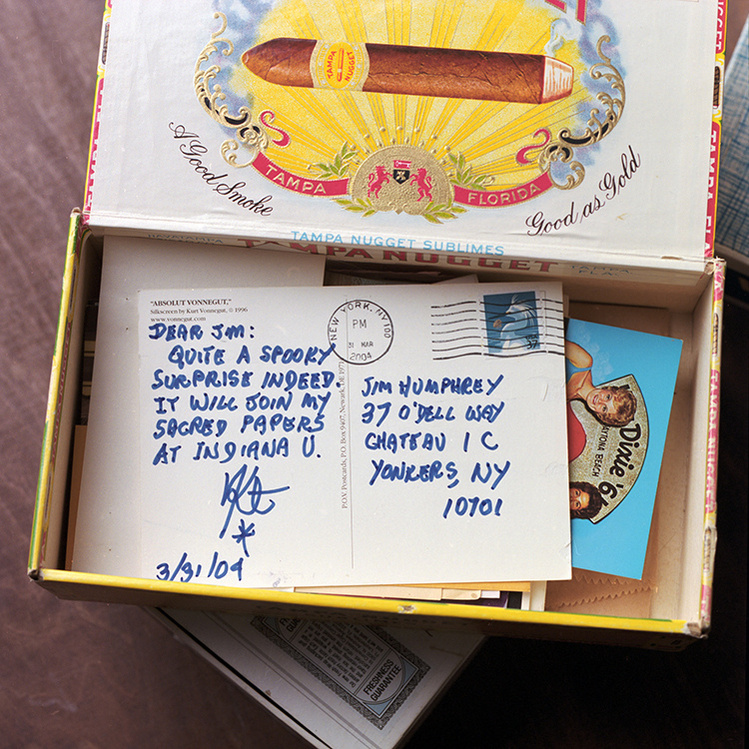 TAMPA NUGGET
A Good Smoke
TAMPA
FLORIDA
Good as Gold
TAMPA NUGGET SUBLIMES
TAMPA NUGGET
"ABSOLUT VONNEGUT,"
Silkscreen by Kurt Vonnegut, © 1996
www.vonnegut.com
DEAR JIM:
QUITE A SPOOKY
SURPRISE INDEED.
IT WILL JOIN MY
SACRED PAPERS
AT INDIANA U.
3/31/04
P.O.V. Postcards, P.O. Box 9407, Newark, DE
NEW YORK, NY 100
PM
31 MAR
2004
37
JIM HUMPHREY
37 O'DELL WAY
CHATEAU 1 C
YONKERS, NY
10701
Dixie '6
YTONA BEACH
FRESHNESS
GUARANTEE